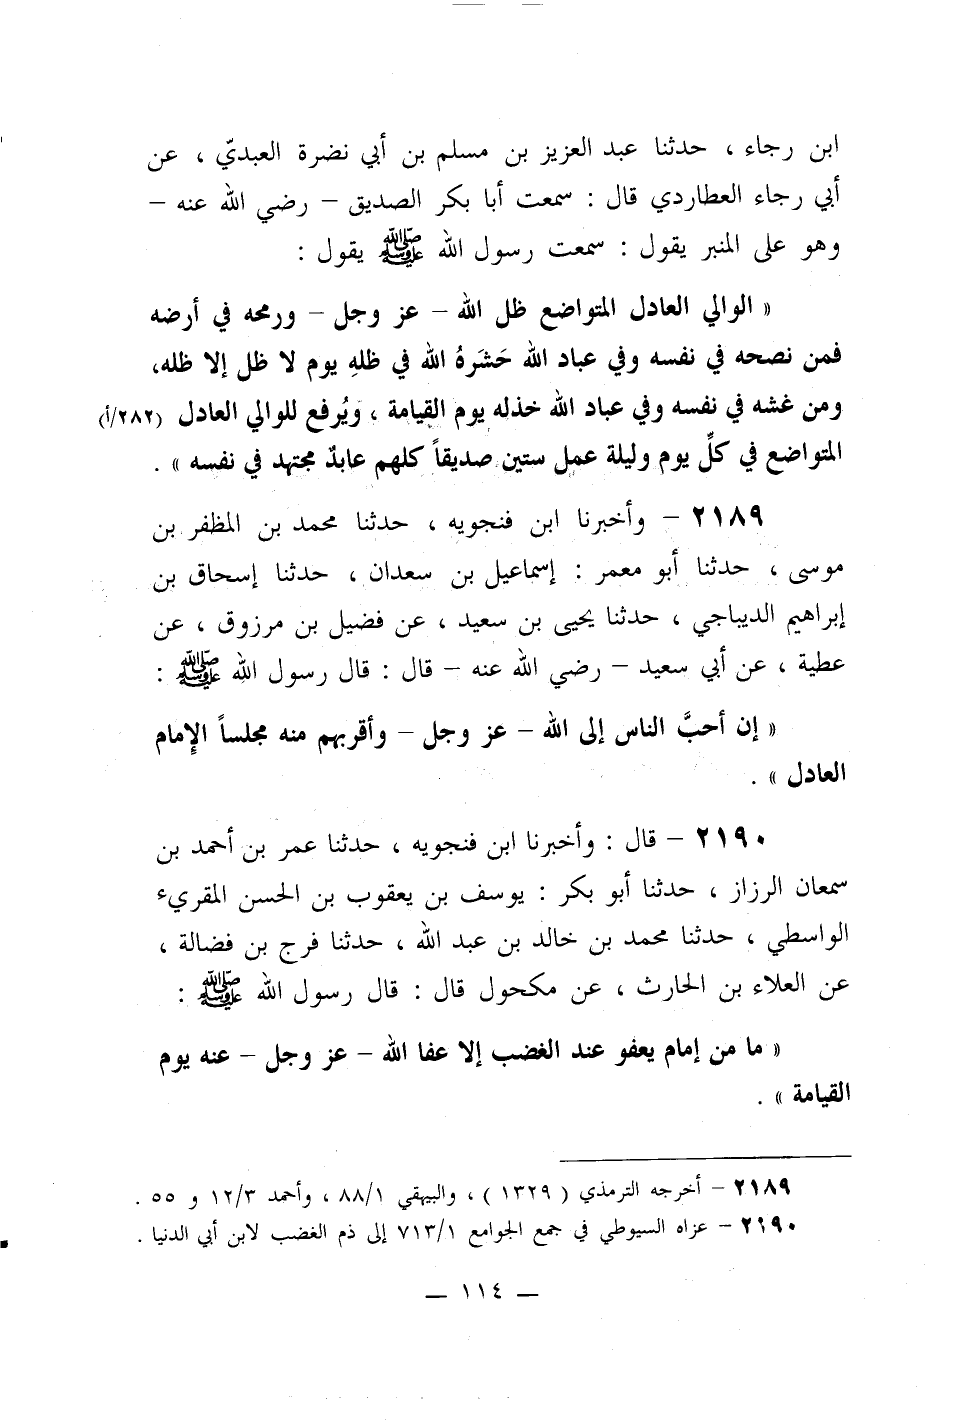 ابن رجاء ، حدثنا عبد العزيز بن مسلم بن أبي نضرة العبديّ ، عن
أبي رجاء العطاردي قال : سمعت أبا بكر الصديق – رضي الله عنه –
وهو على المنبر يقول : سمعت رسول الله ﷺ يقول :
« الوالي العادل المتواضع ظل الله – عز وجل – ورمحه في أرضه
فمن نصحه في نفسه وفي عباد الله حَشَرهُ الله في ظلهِ يوم لا ظل إلا ظله،
ومن غشه في نفسه وفي عباد الله خذله يوم القيامة ، ويُرفع للوالي العادل (٢٨٢/أ)
المتواضع في كلِّ يوم وليلة عمل ستين صديقاً كلهم عابدٌ مجتهد في نفسه » .
٢١٨٩ – وأخبرنا ابن فنجويه ، حدثنا محمد بن المظفر بن
موسى ، حدثنا أبو معمر : إسماعيل بن سعدان ، حدثنا إسحاق بن
إبراهيم الديباجي ، حدثنا يحيى بن سعيد ، عن فضيل بن مرزوق ، عن
عطية ، عن أبي سعيد – رضي الله عنه – قال : قال رسول اللهِ ﷺ :
« إن أحبَّ الناس إلى الله – عز وجل – وأقربهم منه مجلساً الإمام
العادل » .
٢١٩٠ – قال : وأخبرنا ابن فنجويه ، حدثنا عمر بن أحمد بن
سمعان الرزاز ، حدثنا أبو بكر : يوسف بن يعقوب بن الحسن المقريء
الواسطي ، حدثنا محمد بن خالد بن عبد الله ، حدثنا فرج بن فضالة ،
عن العلاء بن الحارث ، عن مكحول قال : قال رسول الله ﷺ :
« ما من إمام يعفو عند الغضب إلا عفا الله – عز وجل – عنه يوم
القيامة » .
٢١٨٩ – أخرجه الترمذي ( ١٣٢٩ ) ، والبيهقي ٨٨/١ ، وأحمد ١٢/٣ و ٥٥ .
٢١٩٠ – عزاه السيوطي في جمع الجوامع ٧١٣/١ إلى ذم الغضب لابن أبي الدنيا .
— ١١٤ —